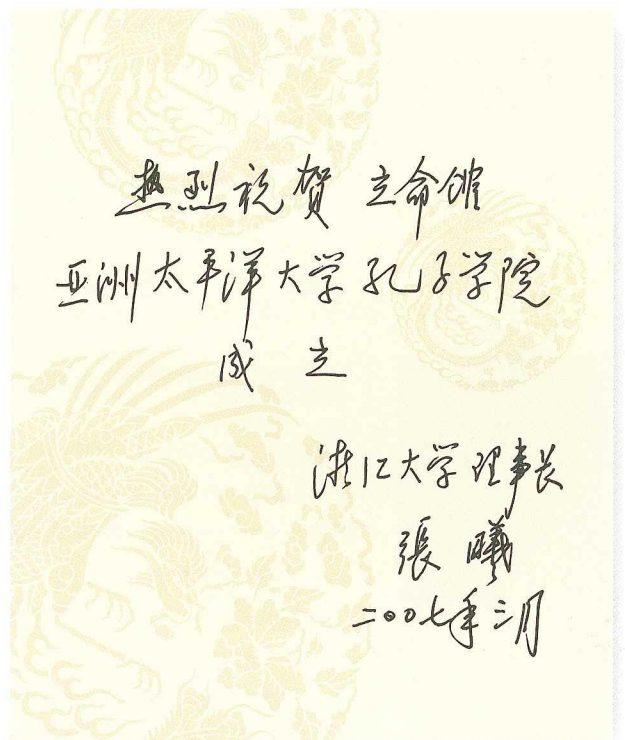 热烈祝贺 立命馆
亚洲太平洋大学孔子学院
成 立
浙江大学理事长
張 曦
二〇〇七年三月